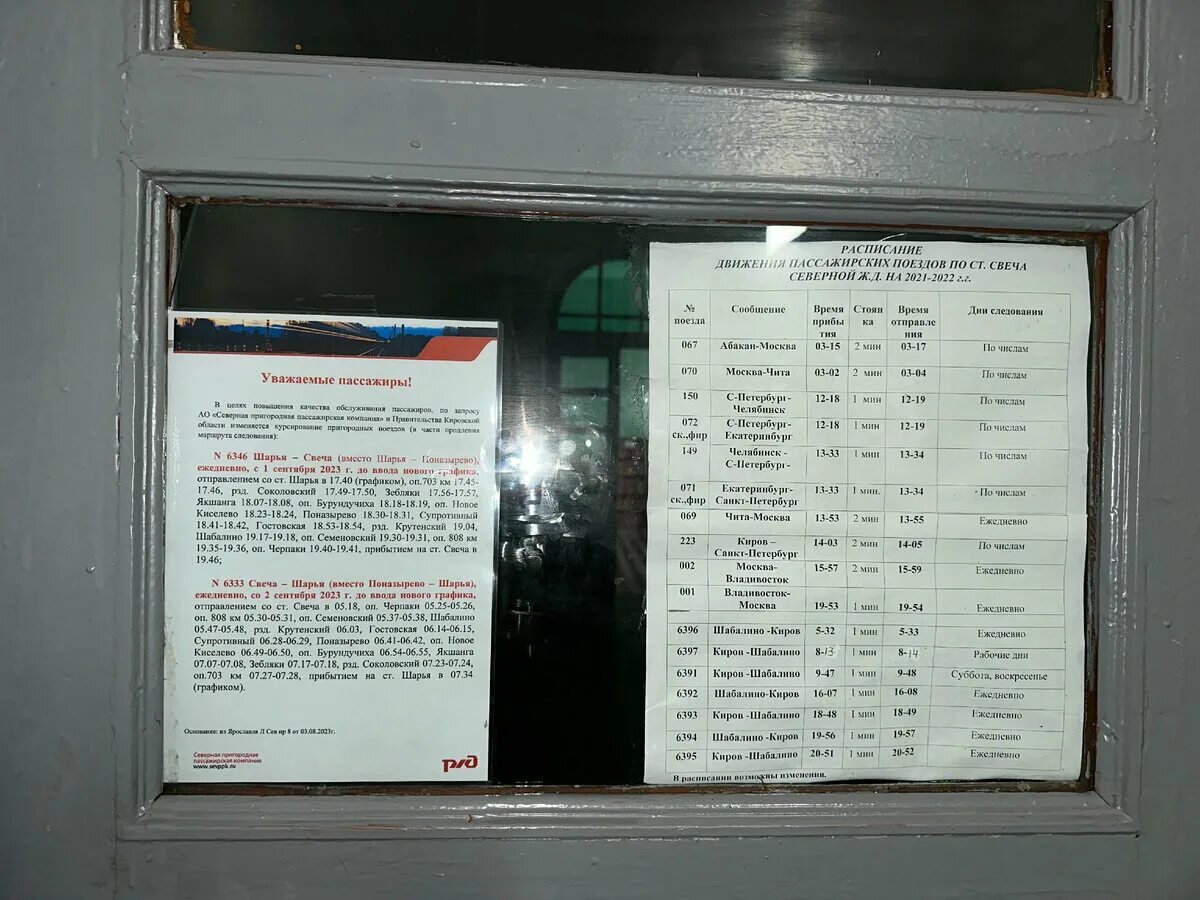 Уважаемые пассажиры!
В целях повышения качества обслуживания пассажиров, по запросу
АО «Северная пригородная пассажирская компания» и Правительства Кировской
области изменяется курсирование пригородных поездов (в части продления
маршрута следования):
N 6346 Шарья – Свеча (вместо Шарья – Поназырево),
ежедневно, с 1 сентября 2023 г. до ввода нового графика,
отправлением со ст. Шарья в 17.40 (графиком), оп.703 км 17.45-
17.46, рзд. Соколовский 17.49-17.50, Зебляки 17.56-17.57,
Якшанга 18.07-18.08, оп. Бурундучиха 18.18-18.19, оп. Новое
Киселево 18.23-18.24, Поназырево 18.30-18.31, Супротивный
18.41-18.42, Гостовская 18.53-18.54, рзд. Крутенский 19.04,
Шабалино 19.17-19.18, оп. Семеновский 19.30-19.31, оп. 808 км
19.35-19.36, оп. Черпаки 19.40-19.41, прибытием на ст. Свеча в
19.46;
N 6333 Свеча – Шарья (вместо Поназырево – Шарья),
ежедневно, со 2 сентября 2023 г. до ввода нового графика,
отправлением со ст. Свеча в 05.18, оп. Черпаки 05.25-05.26,
оп. 808 км 05.30-05.31, оп. Семеновский 05.37-05.38, Шабалино
05.47-05.48, рзд. Крутенский 06.03, Гостовская 06.14-06.15,
Супротивный 06.28-06.29, Поназырево 06.41-06.42, оп. Новое
Киселево 06.49-06.50, оп. Бурундучиха 06.54-06.55, Якшанга
07.07-07.08, Зебляки 07.17-07.18, рзд. Соколовский 07.23-07.24,
оп.703 км 07.27-07.28, прибытием на ст. Шарья в 07.34
(графиком).
Основание: из Ярославля Л Сев нр 8 от 03.08.2023г.
Северная пригородная
пассажирская компания
www.sevppk.ru
ржд
РАСПИСАНИЕ
ДВИЖЕНИЯ ПАССАЖИРСКИХ ПОЕЗДОВ ПО СТ. СВЕЧА
СЕВЕРНОЙ Ж.Д. НА 2021-2022 г.г.
№ Сообщение Время Стоян Время Дни следования
поезда прибы ка отправле
тия ния
067 Абакан-Москва 03-15 2 мин 03-17 По числам
070 Москва-Чита 03-02 2 мин 03-04 По числам
150 С-Петербург- 12-18 1 мин 12-19 По числам
Челябинск
072 С-Петербург- 12-18 1 мин 12-19 По числам
ск.,фир Екатеринбург
149 Челябинск - 13-33 1 мин 13-34 По числам
С-Петербург-
071 Екатеринбург- 13-33 1 мин. 13-34 По числам
ск.,фир Санкт-Петербург
069 Чита-Москва 13-53 2 мин 13-55 Ежедневно
223 Киров – 14-03 2 мин 14-05 По числам
Санкт-Петербург
002 Москва- 15-57 2 мин 15-59 Ежедневно
Владивосток
001 Владивосток- 19-53 1 мин 19-54 Ежедневно
Москва
6396 Шабалино -Киров 5-32 1 мин 5-33 Ежедневно
6397 Киров -Шабалино 8-13 1 мин 8-14 Рабочие дни
6391 Киров -Шабалино 9-47 1 мин 9-48 Суббота, воскресенье
6392 Шабалино-Киров 16-07 1 мин 16-08 Ежедневно
6393 Киров -Шабалино 18-48 1 мин 18-49 Ежедневно
6394 Шабалино -Киров 19-56 1 мин 19-57 Ежедневно
6395 Киров -Шабалино 20-51 1 мин 20-52 Ежедневно
В расписании возможны изменения.